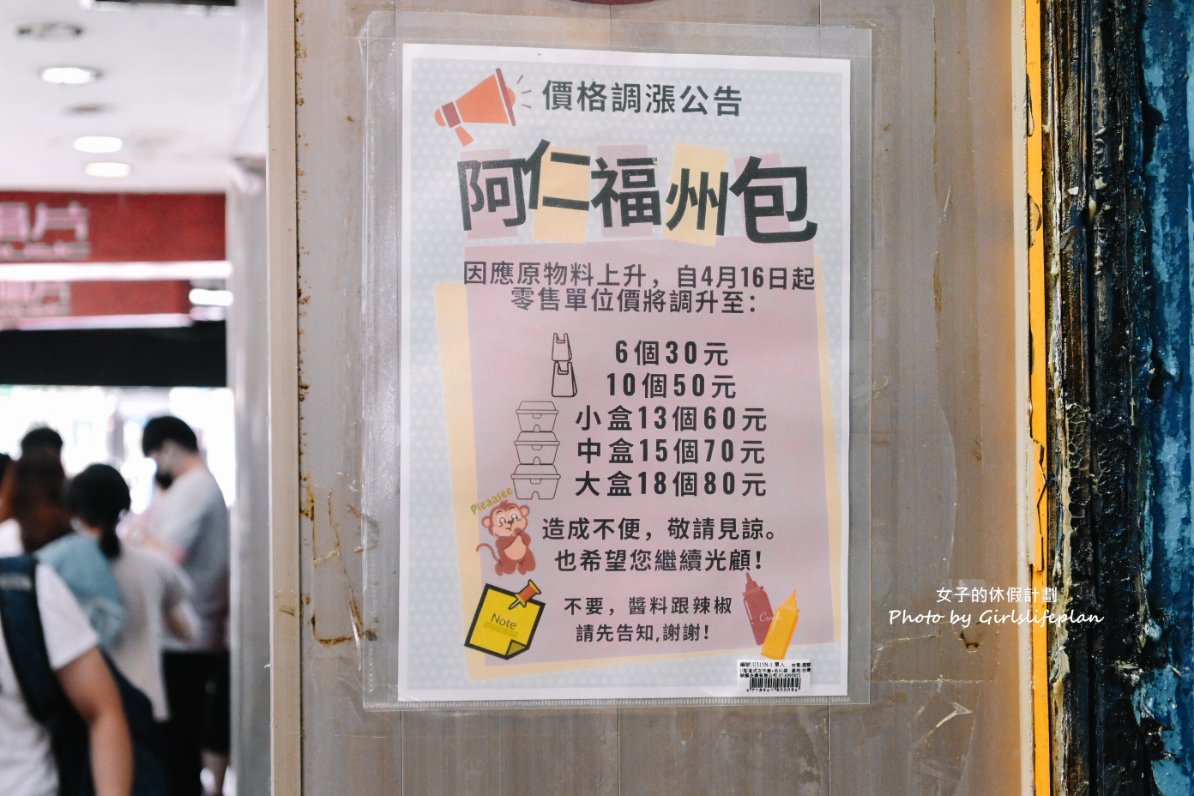 價格調漲公告
阿仁福州包
因應原物料上升，自4月16日起
零售單位價將調升至：
6個30元
10個50元
小盒13個60元
中盒15個70元
大盒18個80元
Pleaasee
造成不便，敬請見諒。
也希望您繼續光顧！
Note
不要，醬料跟辣椒
請先告知,謝謝！
女子的休假計劃
Photo by Girlslifeplan